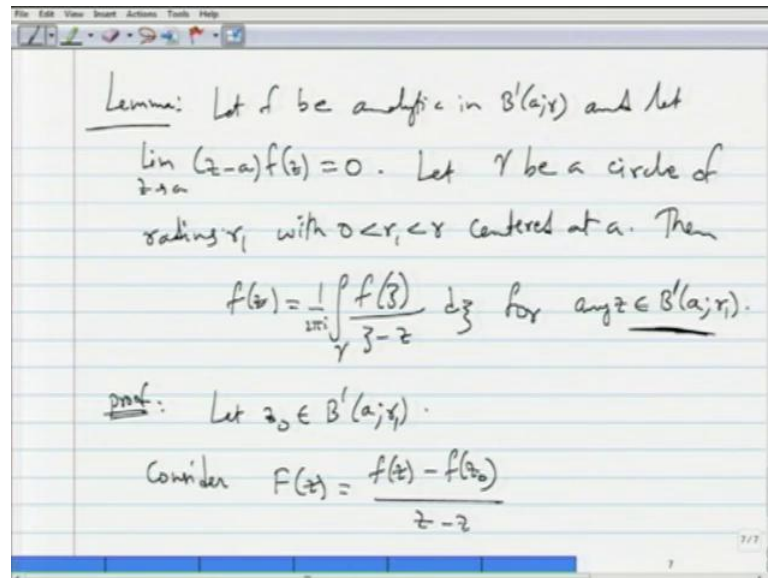 File Edit View Insert Actions Tools Help
Lemma: Let f be analytic in B'(a;r) and let
lim (z-a) f(z) = 0. Let γ be a circle of
z→a
radius r₁ with 0<r₁<r centered at a. Then
f(z) = 1/2πi ∫_γ f(ξ)/ξ-z dξ for any z ∈ B'(a;r₁).
proof: Let z₀ ∈ B'(a;r₁).
Consider F(z) = f(z) - f(z₀)/z-z
7/7
7